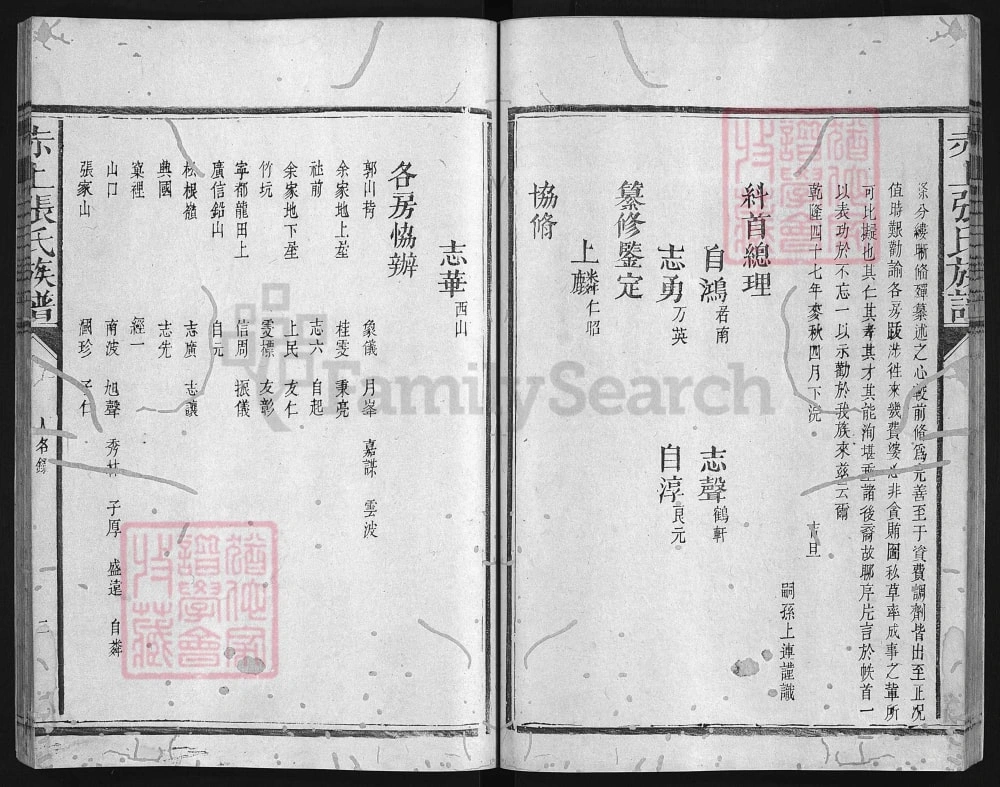 赤山張氏族譜
條分縷晰脩殫纂述之心較前脩為完善至于資費調劑皆出至正况
值時艱勸諭各房跋涉徃來幾費婆心非貪賄圖私草率成事之軰所
可比擬也其仁其孝其才其能洵堪垂諸後裔故聊序片言於帙首一
以表功於不忘一以示勸於我族來兹云爾
乾隆四十七年麥秋四月下浣 吉旦
嗣孫上連謹識
斜首總理
自鴻若南 志聲鶴軒
志勇万英 自淳良元
纂修鑒定
上麟仁昭
協脩
志華西山
各房恊辦
郭山背 象儀 月峯 嘉謀 雲波
余家地上垄 桂雯 秉亮
祉前 志六 自起
余家地下垄 上民 友仁
竹坑 雯標 友彰
寜都龍田上 信周 振儀
廣信鉛山 自元
松根嶺 志廣 志讓
典國 志先
窠裡 經一
山口 南波 旭聲 秀林 子厚 盛遠 自粦
張家山 珮珍 子仁
赤山張氏族譜
人名錄
二
猶他家譜學會收藏
猶他家譜學會收藏
FamilySearch